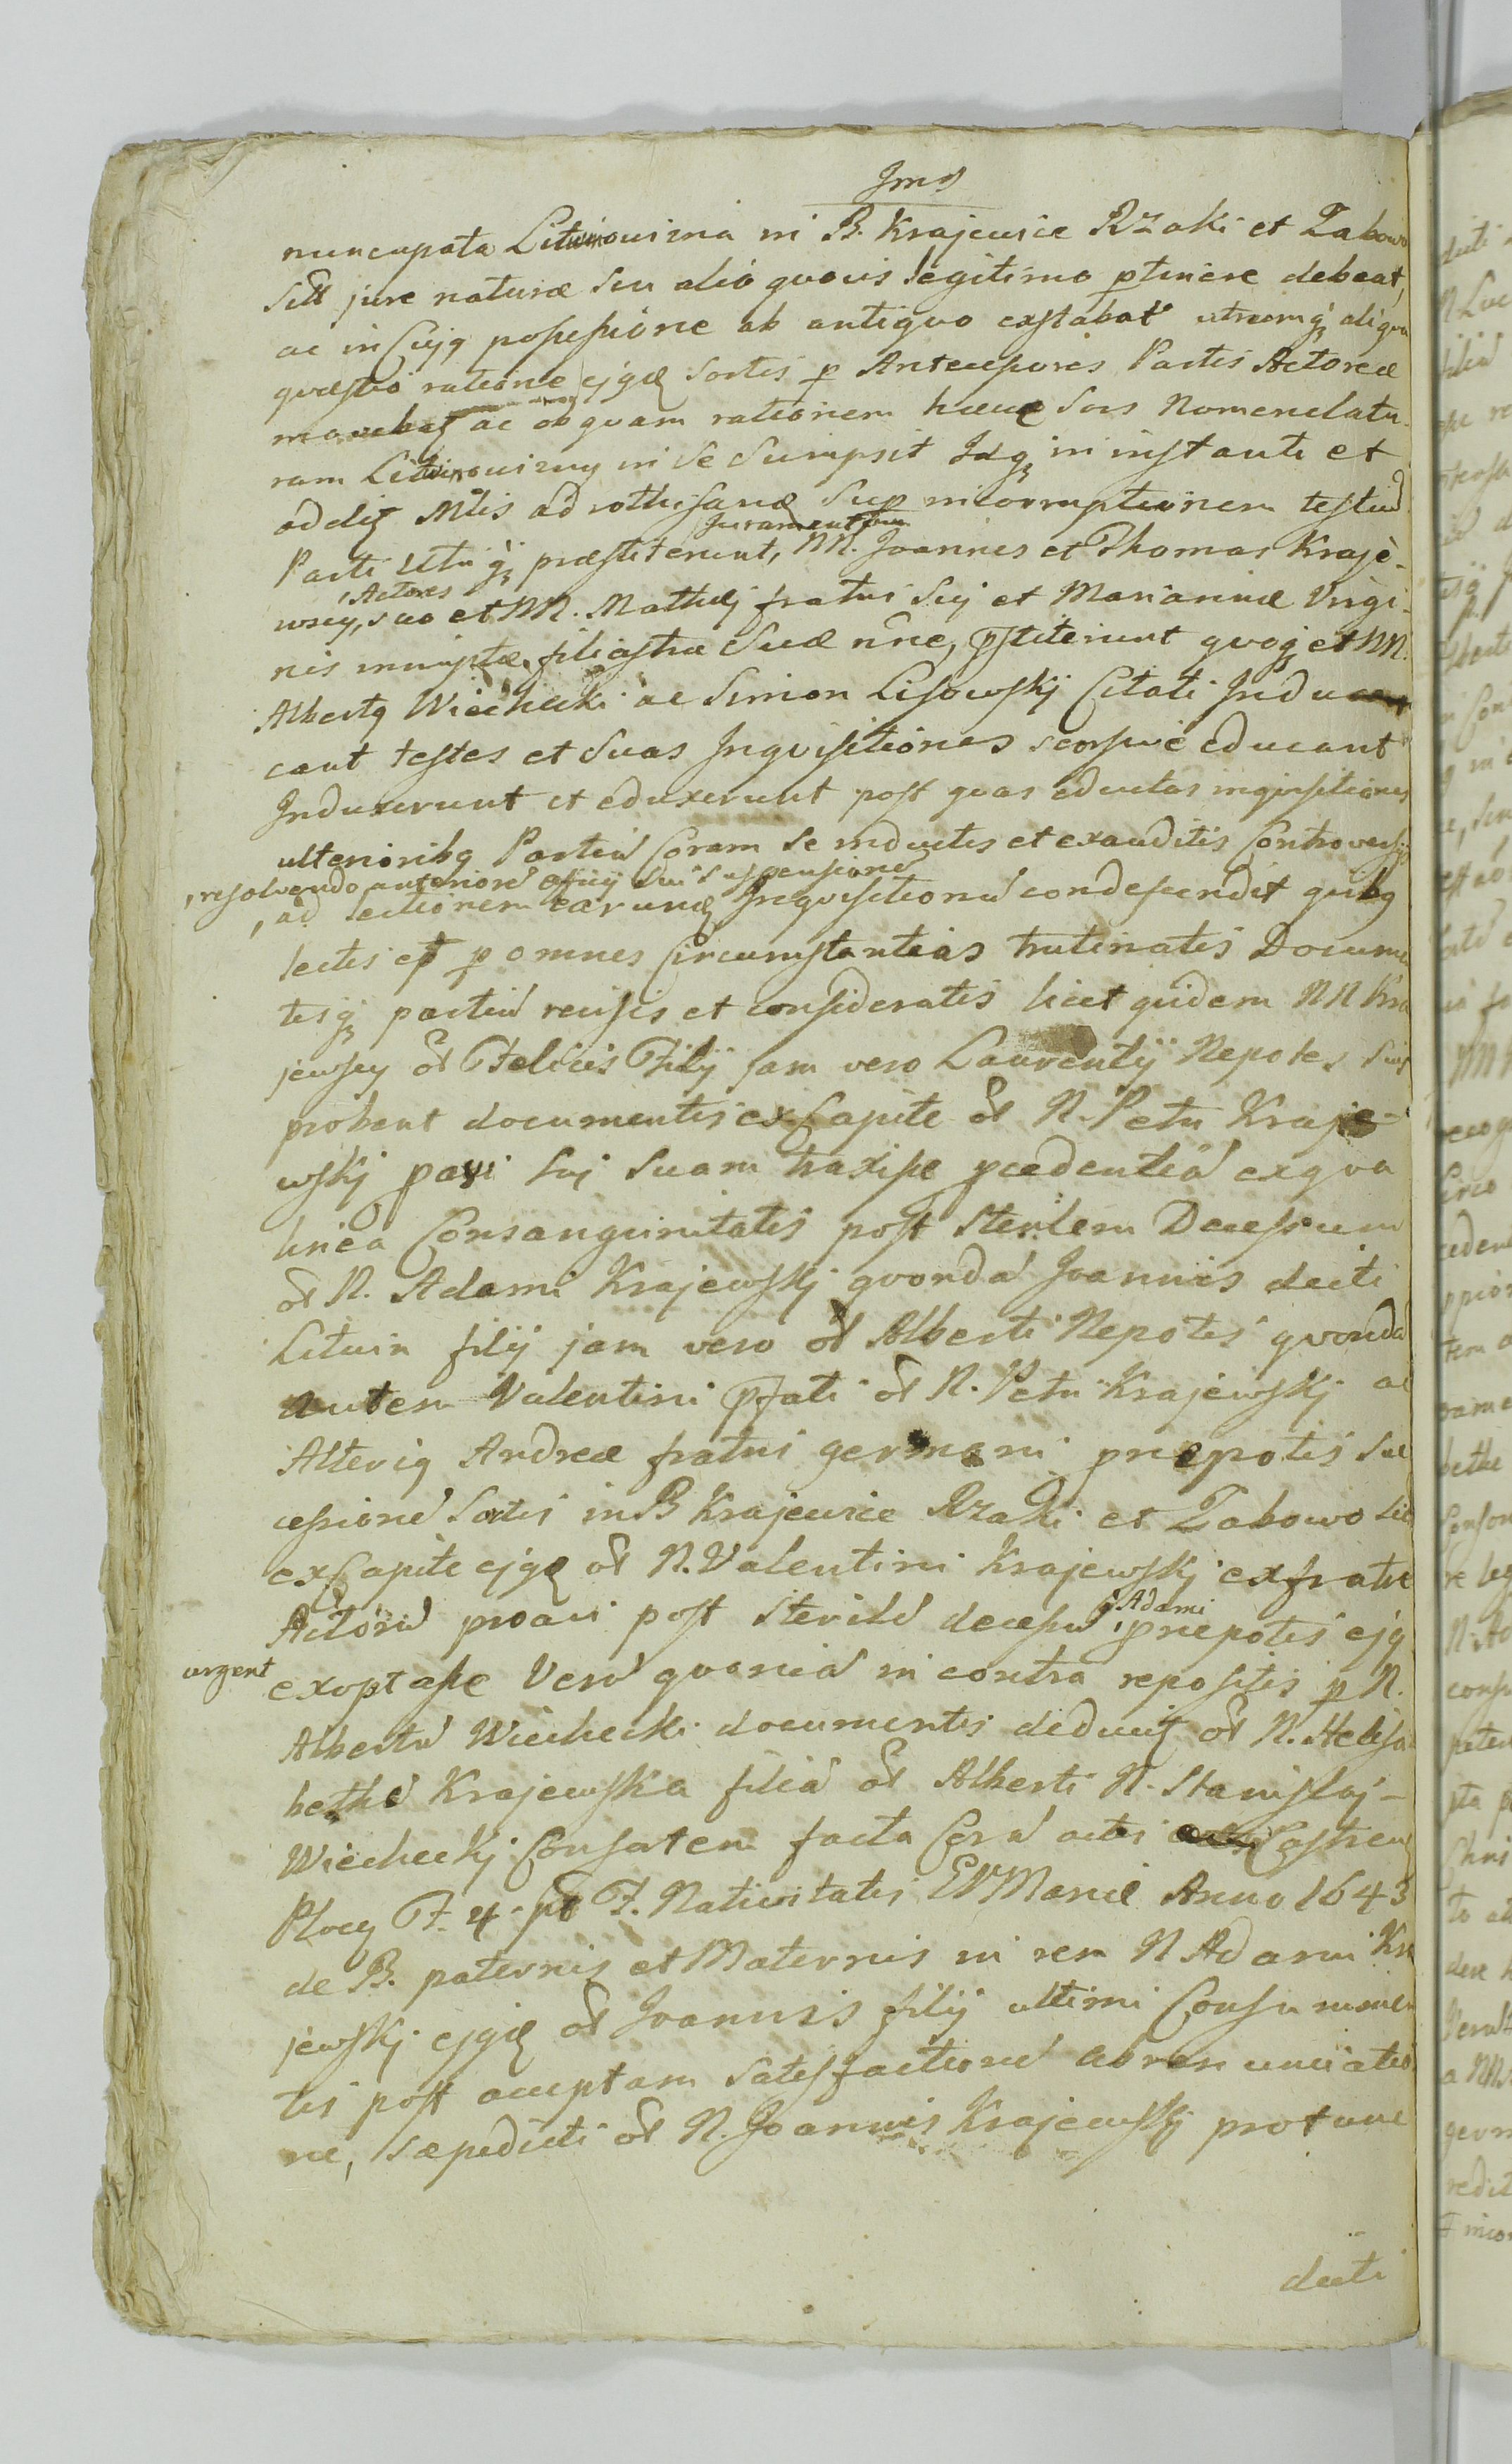 nuncupata Lituinouizna in B. Krajewice Rzaki et Zabowo
jure naturæ seu alio quovis legitimo ptinere debeat,
ac in Cujq possessione ab antiquo exstabat utrumq aliqua
quæstio ratione ejqd Sortis p Antecessores Partis Actoreæ
movebat ac ob quam rationem hæc sors Nomenclatu-
ram Lituinouizny in se sumpsit Idq in instanti et
Mtis ad rothisand sup incorruptionem testiu
Juramentum
Parti Utriq præstiterunt, NN. Joannes et Thomas Kraje-
, Actores
wscy, suo et NN. Mathæj fratris Suj et Mariannæ Virgi-
nis innuptæ, filiastræ Suæ nne, pstiterunt quoq et NN.
Albertq Wiechecki ac Simon Lisowskj Citati Indu
cant testes et Suas Inquisitiones seorsive educant
Induxerunt et eduxerunt post quas eductas inquisitiones
ulterioribq Partiu Coram Se inductis et exauditis Controversijs
, resolvendo anteriore officij sui suspensione
, ad lectionem earund Inquisitionu condescendit quibq
lectis et p omnes Circumstantias trutinatis Docume
tisq partiu recisis et consideratis licet quidem NN Kra
jewscy ol Felicis Filij jam vero Laurentij Nepotes suis
probent documentis ex Capite ol N. Petri Kraje-
wskj pavi suj suam traxisse pcedentia ex qva
linea Consanguinitatis post Sterilem Decessum
ol N. Adami Krajewskj qvonda Joannis dicti
Lituin filij jam vero ol Alberti Nepotis qvonda
autem Valentini pfati ol N. Petri Krajewskj ac
Alteriq Andreæ fratris germani pnepotis suc
cessione Sortis in B Krajewice Rzaki et Zabowo
ex Capite ejqd ol N. Valentini Krajewskj ex fratre
, Adami
Actoru proavi post sterile decessu pnepotis ejq
urgent
exoptasse Veru qvonia in contra repositis p N.
Albertu Wiechecki documentis deducit ol N. Helisa
betha Krajewska filia ol Alberti N. Stanislaj-
Wiecheckj Consorten facta Cora actis Castren
Plocen F. 4. pt F. Nativitatis BVMariæ Anno 1643
de B. paternis et Maternis in rem N Adami Kra
jewskj ejqd ol Joannis filij ultimi Consummen
tis post acceptam satisfactione abrenunciatio
ne, sæpedicti ol N. Joannis Krajewskj protunc
dicti